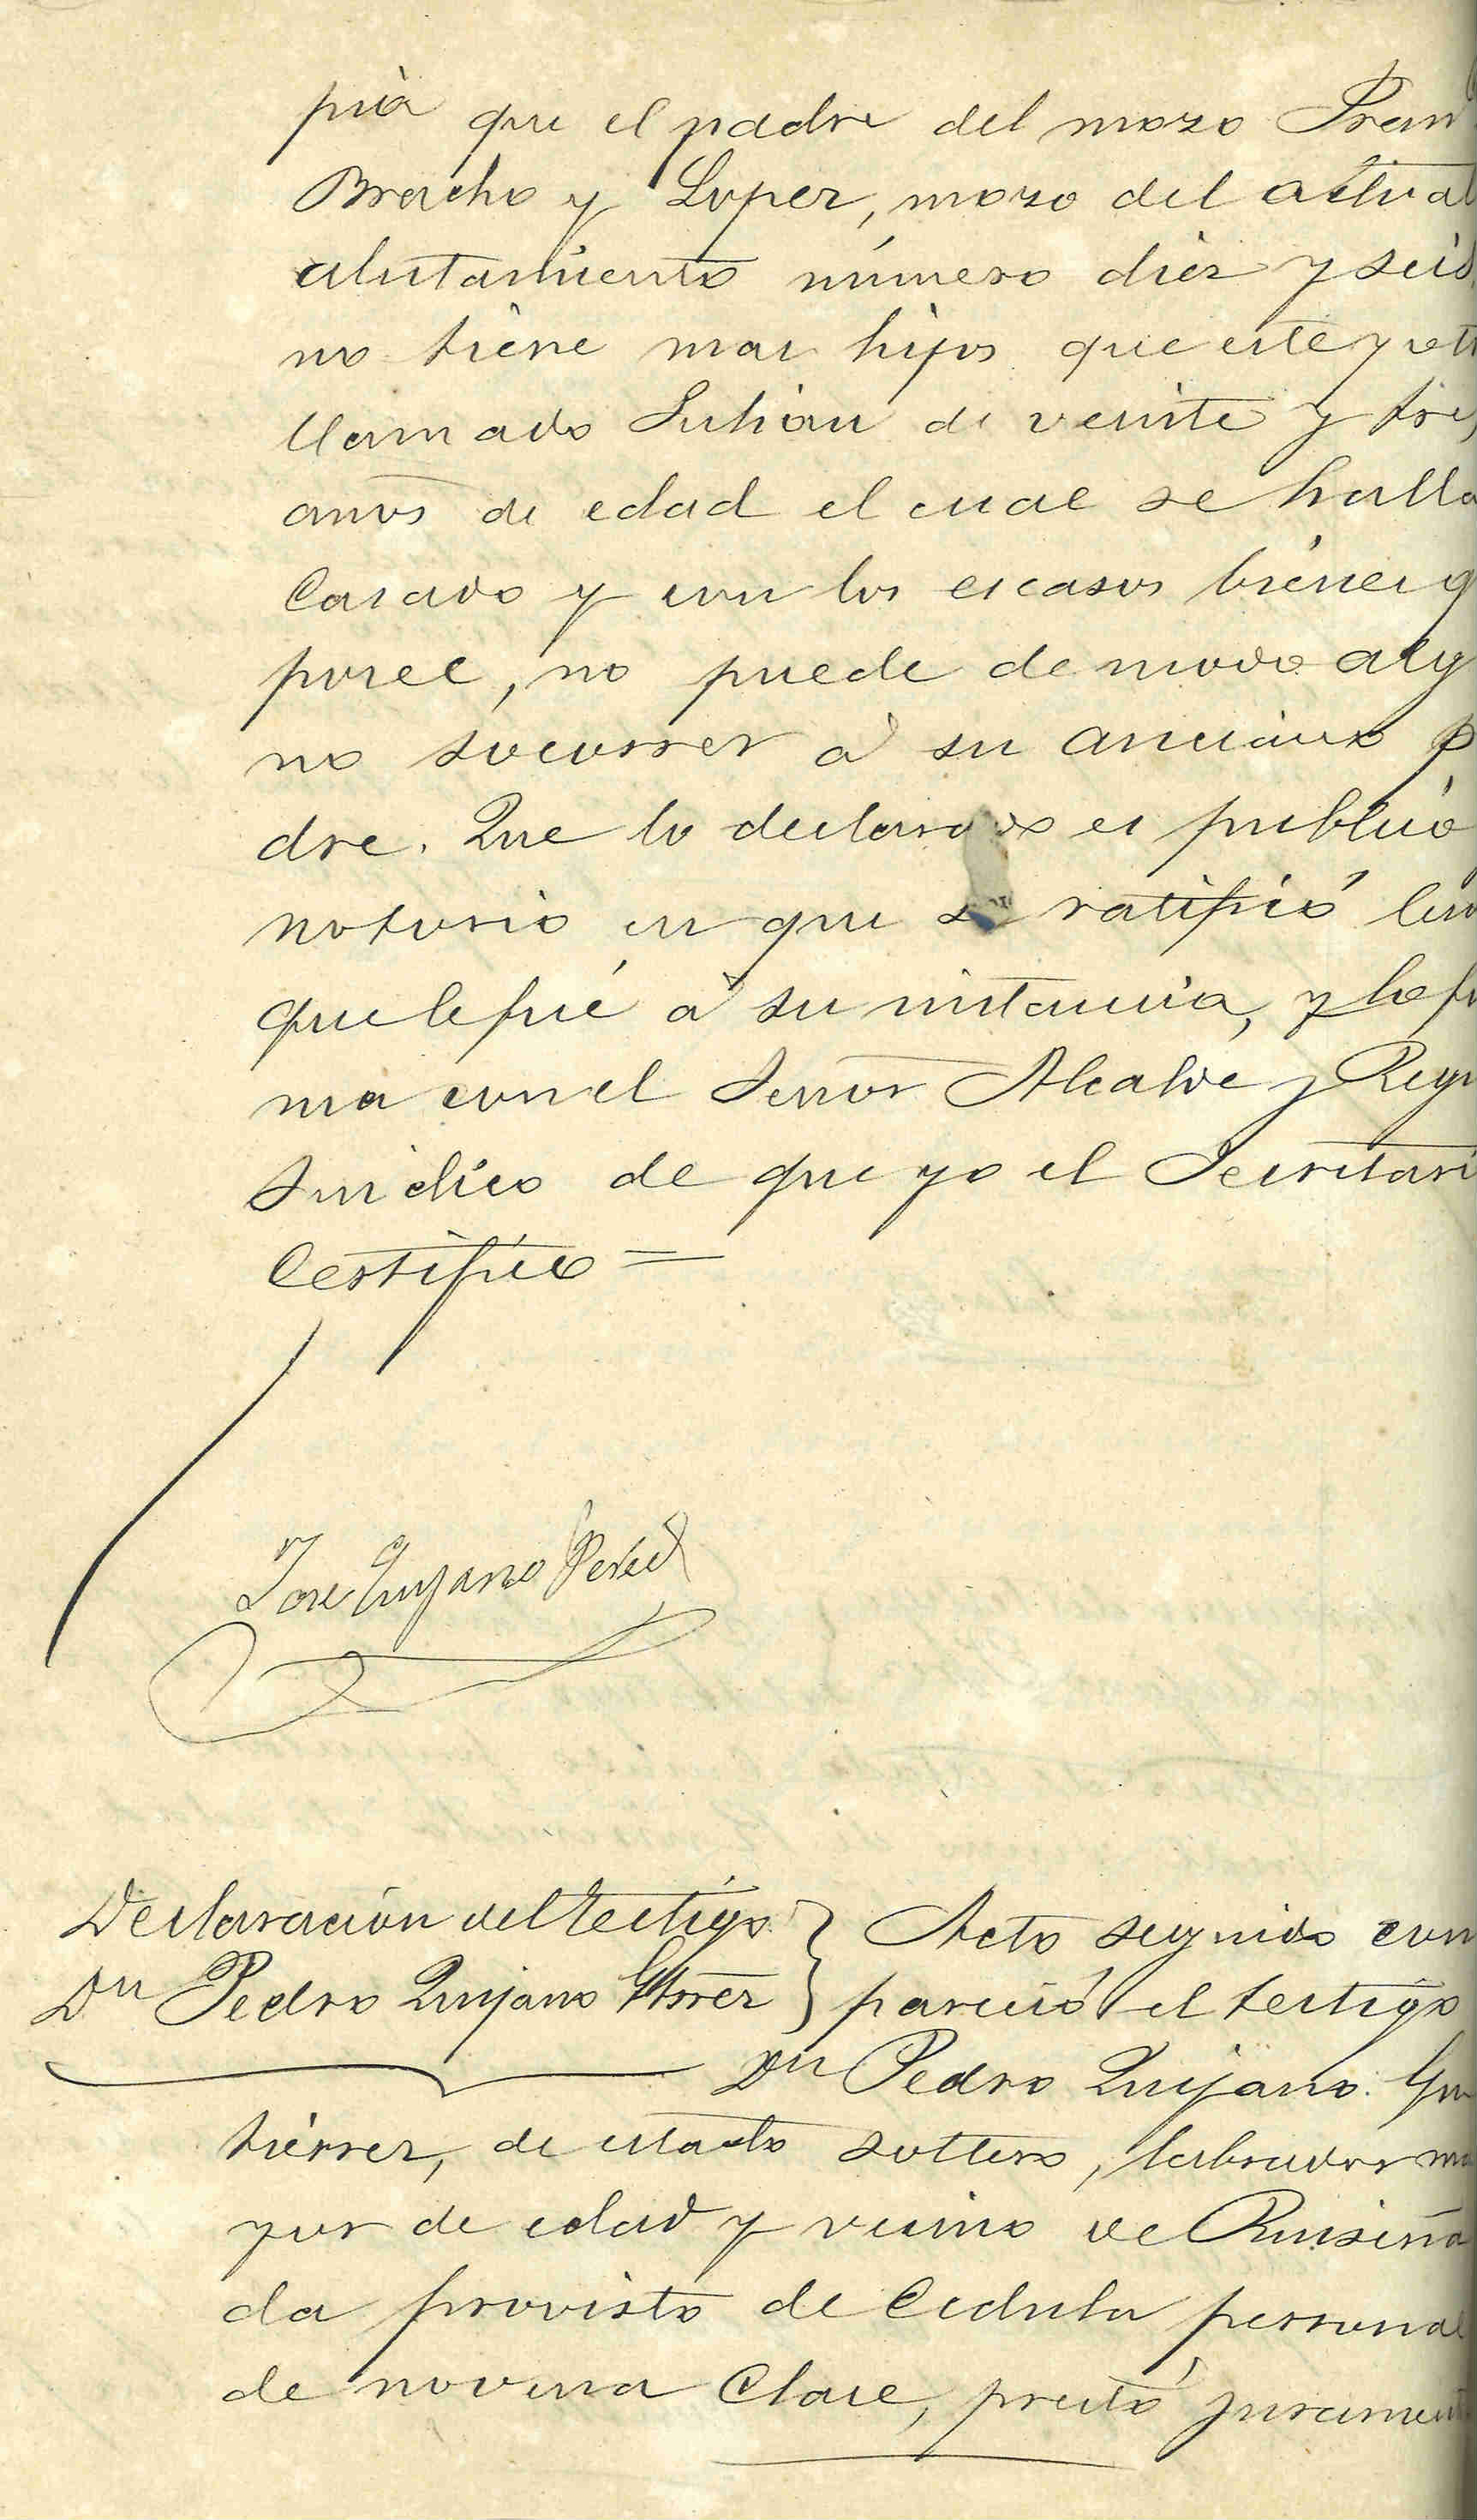 pia que el padre del mozo Fran
Bracho y Lopez, mozo del actual
alistamiento número diez y seis
no tiene mas hijos que este y ot
llamado Julian de veinte y tres
años de edad el cual se halla
Casado y con los escasos bienes q
posee, no puede de modo alg
no socorrer á su anciano p
dre. Que lo declarado es publico
notorio en que se ratificó
que le fué á su instancia, y lo fi
ma con el Señor Alcalde y Regi
Sindico de que yo el Secretari
Certifico =
Jose Quijano Perez
Declaración del testigo } Acto seguido com
Dn Pedro Quijano Gtrrez } pareció el testigo
Dn Pedro Quijano Gu
tierrez, de estado soltero, labrador ma
yor de edad y vecino de Ruiseña
da provisto de Cedula personal
de novena Clase, prestó jurament